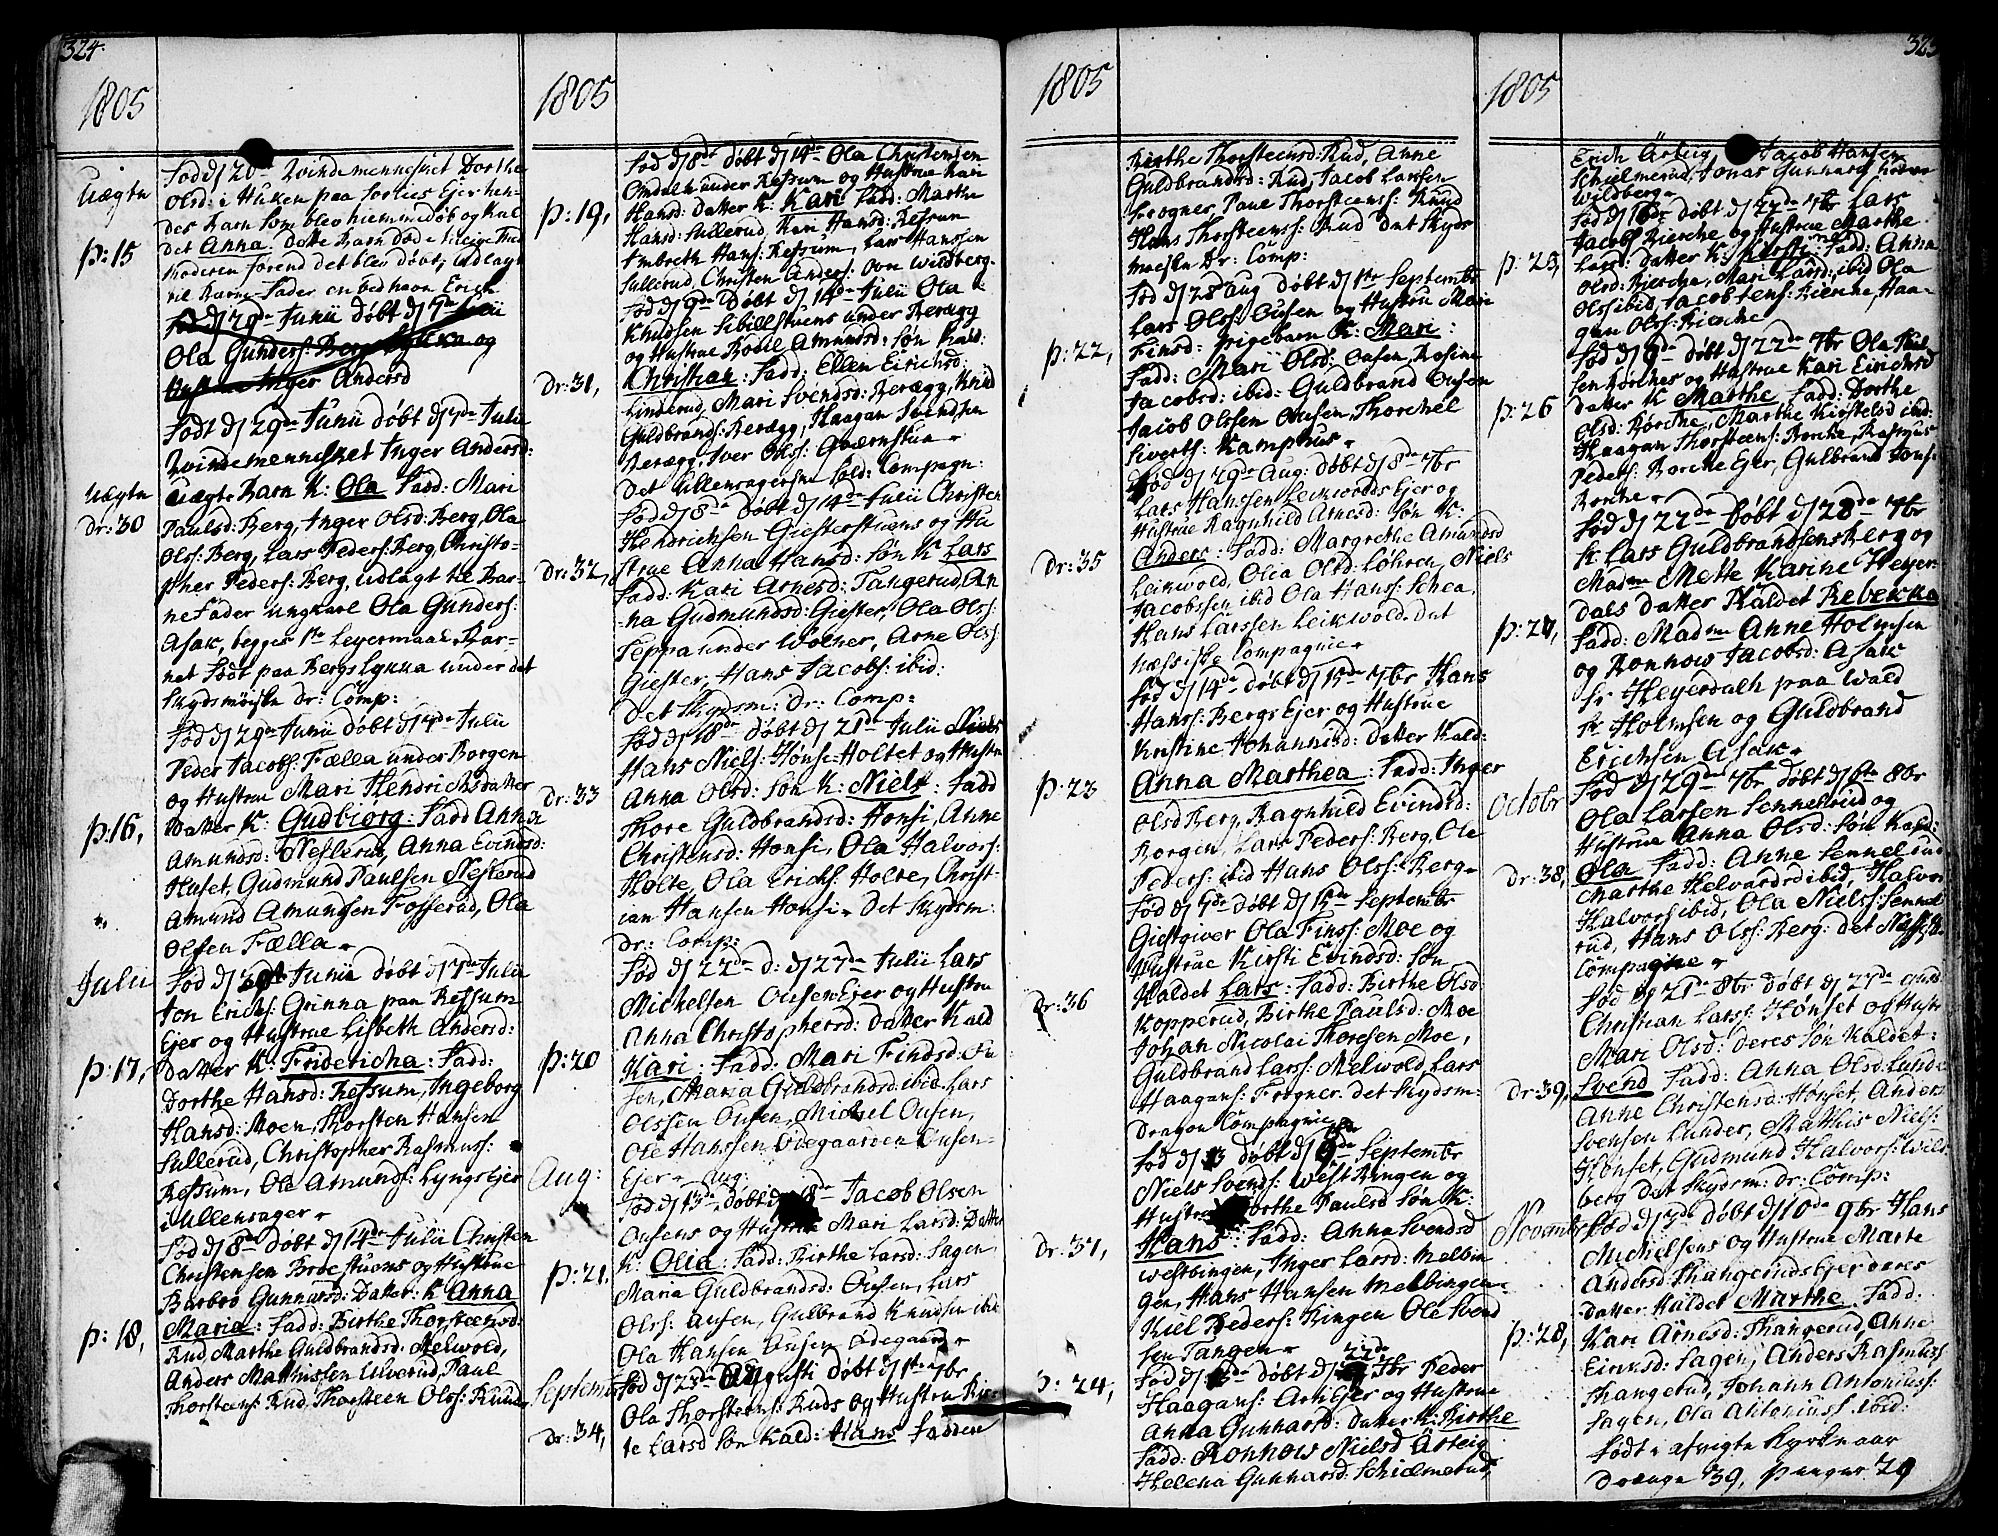 324.
1805
Uægte
P: 15
Fød d 20de Qvindemennisket Dorthe
Olsd: i Huken paa Eier hen-
des Barn som blev hiemmedøb og kal
det Anna. Dette Barn døde
Moderen førend det blev døbt, udlagt
til Barne-Fader en ved navn Erich
Fød d 29de Junii døbt d 7de Julii
Ola Gunders: Berg Lykka og
Hustrue Inger Andersd
Uægte
Dr: 30
Født d 29de Junii døbt d 7de Julii
Qvindemennisket Inger Andersd:
Uægte Barn K: Ola Fadd: Mari
Paulsd: Berg, Inger Olsd: Berg, Ola
Ols: Berg, Lars Peders: Berg, Christo-
pher Peders: Berg, udlagt til Bar-
ne Fader ungkarl Ola Gunders:
Asak, begges 1te Leyermaal Bar-
net Født paa Bergs Lykka under det
Skydsmøiske Dr: Comp:
P: 16,
Fød d 29de Junii døbt d 7de Julii
Peder Jacobs: Fælla under Borgen
og Hustrue Mari Hendrichsdatter
Datter K: Gudbiørg: Fadd Anna
Amundsd: Nesterud, Anna Evindsd:
Huset, Gudmund Paulsen Nesterud
Amund Amundsen Fosserud, Ola
Olsen Fælla
Julii
P: 17,
Fød d 30te Junii døbt d 7de Julii
Jon Erichs: Grinna paa Ressum
Ejer og Hustrue Lisbeth Andersd:
Datter K: Fridericha: Fadd:
Dorthe Hansd: Ressum, Ingeborg
Hansd: Moen, Thorsten Hansen
Sullerud, Christopher Rasmuss:
Ressum, Ole Amunds: Lyngs Ejer
i Ullensager
P: 18,
Fød d 8de døbt d 14de Julii Christen
Christensen Broestuens og Hustrue
Barbro Gunnarsd: Datter: K Anna
Maria: Fadd: Birthe Thorsteensd:
Rud, Marthe Guldbrandsd: Melwold,
Anders Mathissen Ulverud, Paul
Thorsteens: Rud, Thorsteen Ols: Ruud
1805
P: 19,
Fød d 8de døbt d 14de Ola Christensen
Omdalen under Ressum og Hustrue Kari
Hansd: Datter K: Kari Fadd: Marthe
Hansd: Sullerud, Kari Hansd: Ressum
Embreth Hans: Ressum, Lars Hanssen
Sullerud, Christen Anders: Ovn Wildberg.
Dr: 31,
Fød d 9de døbt d 14de Julii Ola
Knudsen Sibillstuens under Berægg
og Hustrue Bodil Amundsd: Søn Kald:
Christian: Fadd: Ellen Eirichsd:
Linderud, Mari Svendsd: Berægg, Knud
Guldbrands: Berægg, Haagan Svendsen
Berægg, Iver Ols: Qværnstua
Det Ullensagerske Sold: Compagn:
Dr: 32,
Fød d 8de døbt d 14de Julii Christen
Hendrichsen Giesterstuens og Hu
strue Anna Hansd: Søn K Lars
Fadd: Kari Arnesd: Tangerud, An-
na Gudmundsd: Giester, Ola Ols:
Seppa under Wolner, Arne Ols:
Giester, Hans Jacobs: ibid:
Det Skydsm: Dr: Comp:
Dr: 33
Fød d 18de døbt d 21de Julii
Hans Niels: Hønsi-Holtet og Hustru
Anna Olsd: Søn K: Niels: Fadd
Thore Guldbrandsd: Honsi, Anne
Christensd: Honsi, Ola Halvors:
Holte, Ola Erichs: Holte, Christ-
ian Hansen Honsi. Det Skydsm:
Dr: Comp:
P: 20
Fød d 22de d: d 27de Julii Lars
Michelsen Ousen Ejer og Hustru
Anna Christophersd: Datter Kald
Kari: Fadd: Mari Findsd: Ou
sen, Maria Guldbrandsd: ibid Lars
Olssen Ousen, Michel Ousen,
Ole Hanssen Ødegaarden Ousen-
Ejer
Aug:
P: 21.
Aug:
Fød d 13de døbt d 18de Jacob Olsen
Ousens og Hustrue Mari Larsd: Datter
K: Olia: Fadd: Birthe Larsd: Sagen,
Maria Guldbrandsd: Ousen, Lars
Ols: Ousen, Gulbrand Knudsen ibid
Ola Hansen Ousen Ødegaard
Septembr
Dr: 34,
Fød d 25de Augusti døbt d 1te 7br
Ola Thorsteens: Ruds og Hustrue Bir-
te Larsd Søn Kald: Hans Fadder
1805
Birthe Thorsteensd: Rud, Anne
Guldbrandsd: Rud, Jacob Larsen
Frogner, Paul Thorsteens: Ruud
Hans Thorsteens: Rud Det Skyds
moeske Dr: Comp:
P: 22,
Fød d 28de Aug døbt d 1te Septembr
Lars Ols: Ousen og Hustru Mari
Finsd: Pigebarn K: Mari:
Fadd: Mari Olsd: Ousen, Rosine
Jacobsd: ibid: Guldbrand Ousen
Jacob Olssen Ousen, Thorchel
Siverts: Kamphus
Dr: 35
Fød d 29de Aug: døbt d 8de 7br
Lars Hanssen Leikwolds Ejer og
Hustrue Ragnhild Arnesd: Søn K:
Anders: Fadd: Margrethe Amundsd
Leikwold, Olia Olsd: Løhren, Niels
Jacobssen ibid Ola Hans: Schea,
Hans Larssen Leikwold. Det
Næssiske Compagnie
P: 23
Fød d 14de døbt d 15de 7br Hans
Hans: Bergs Ejer og Hustrue
Kristine Johannisd: Datter Kald:
Anna Marthea: Fadd: Inger
Olsd Berg, Ragnhild Evindsd:
Borgen, Lars Peders: Berg, Ole
Peders: ibid Hans Ols: Berg
Dr: 36
Fød d 7de døbt d 15de Septembr
Giestgiver Ola Fins: Moe og
Hustrue Kirsti Evindsd: Søn
Kaldet Lars: Fadd: Birthe Olsd:
Kopperud, Birthe Paulsd: Moe
Johan Nicolai Thoresen Moe,
Guldbrand Lars: Melwold, Lars
Haagans: Frogner. det Skydsm:
Dragon Compagnie
Dr: 37,
Fød d 13 døbt d 18de Septembr
Niels Svends: West Ringen og
Hustrue Dorthe Paulsd Søn K:
Hans: Fadd: Anna Svendsd
Westbingen, Inger Larsd: Melbin
gen, Hans Hansen Melbingen
Kiel Peders: Ringen Ole Svend
sen Tangen
P: 24,
Fød d 15de døbt d 22de 7br Peder
Haagans: Ark Ejer og Hustrue
Anna Gunnarsd: Datter K: Birthe
Fadd: Ronnow Nielsd Asteig
Helena Gunnarsd: Schielmerud,
325
1805
Erich Asteig Jacob Hansen
Schielmerud, Jonas Gunnars
Wildberg
P: 25,
Fød d 16de døbt d 22de 7br Lars
Jacobs Kierche og Hustrue Marthe
Larsd: datter K: Kersti Fadd: Anna
Olsd: Kierche, Mari Larsd: ibid Ola
Ols ibid, Jacob Jens: Kierche, Haa-
gan Ols: Kierche
P: 26
Fød d 9de døbt d 22de 7br Ola
sen Børches og Hustrue Kari Eirichsd
datter K Marthe Fadd: Dorthe
Olsd: Børche, Marthe Kirstelsd ibid:
Haagan Thorsteens: Borche, Rasmus
Peders: Borche Ejer, Gulbrand Jons:
Borche
P: 27,
Fød d 22de døbt d 28de 7br
K Lars Guldbrandsens Berg og
Madme Mette Karine Heyer-
dals Datter Kaldet Rebekka
Fadd: Madme Anne Holmsen
og Ronnow Jacobsd: Asak
Hr Heyerdalh paa Wald
Hr Holmsen og Guldbrand
Erichsen Asak
Octobr
Dr: 38,
Fød d 29de 7br døbt d 6te 8br
Ola Larsen Sennelrud og
Hustrue Anna Olsd: Søn Kald:
Ola Fadd: Anne Sennelrud
Marthe Helvardsd ibid, Halvor
Halvors ibid, Ola Niels: Sennel
rud, Hans Ols: Berg: det Næssiske
Compagnie
Dr: 39,
Fød d 21de 8br døbt d 27de
Christian Lars: Hønset og Hustr
Mari Olsd: deres Søn Kaldet
Svend Fadd: Anna Olsd: Lunde
Anne Christensd: Hønset, Anders
Svensen Lunder, Mathis Niels:
Hønset, Gudmund Halvors: Wild-
berg det Skydsm: Dr: Comp:
November
P: 28,
Fød d 7de døbt d 10de 9br Hans
Michelsens og Hustrue Marte
Andersd Thangeruds Ejer deres
Datter Kaldet Marthe Fadd:
Kari Arnesd: Thangerud, Anne
Einersd: Sagen, Anders Rasmuss:
Thangerud, Johann Antonius:
Sagen, Ola Antonius: ibid:
Født i afvigte Kyrkeaar
Drænge 39, Piinger 29